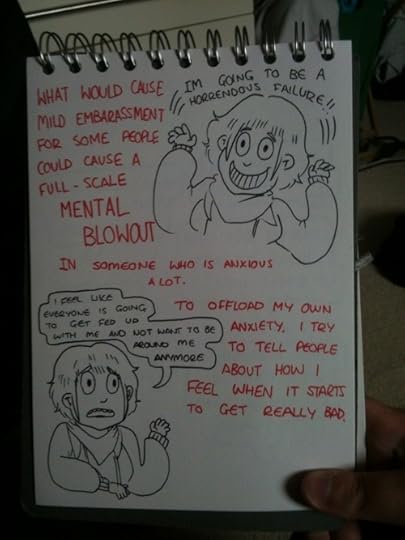 WHAT WOULD CAUSE
MILD EMBARASSMENT
FOR SOME PEOPLE
COULD CAUSE A
FULL-SCALE
MENTAL
BLOWOUT
IM GOING TO BE A
HORRENDOUS FAILURE!!
IN SOMEONE WHO IS ANXIOUS
A LOT.
I FEEL LIKE
EVERYONE IS GOING
TO GET FED UP
WITH ME AND NOT WANT TO BE
AROUND ME
ANYMORE
TO OFFLOAD MY OWN
ANXIETY, I TRY
TO TELL PEOPLE
ABOUT HOW I
FEEL WHEN IT STARTS
TO GET REALLY BAD.